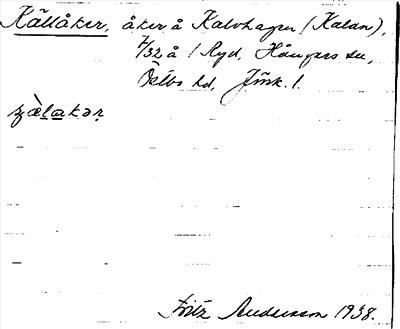 Källåker, åker å Kalvhagen (Kalan),
7/32 å 1 Ryd, Hångers sn,
Östbo hd, Jönk. l.
Fritz Andersson 1938.